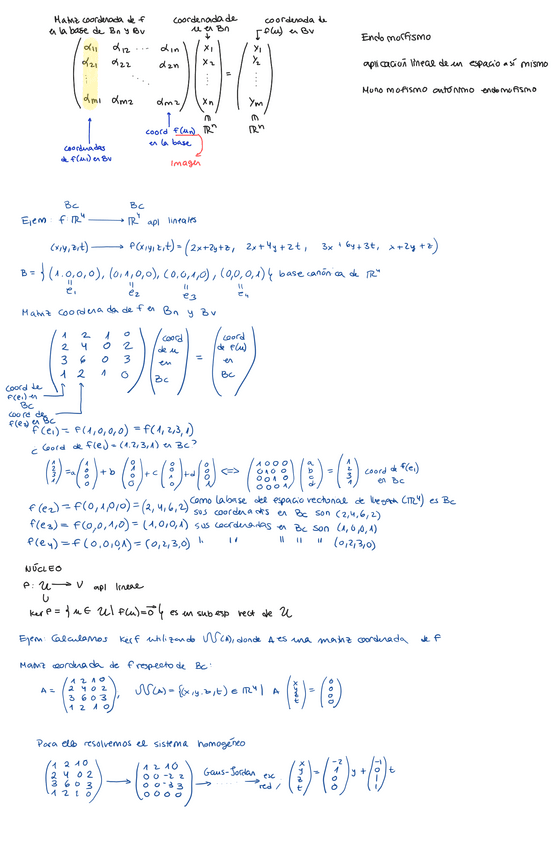 Matriz coordenada de f
en la base de Bn y Bv
coordenada de
u en Bn
coordenada de
f(u) en Bv
α11 α12 ... α1n
α21 α22 α2n
αm1 αm2 αm2
x1
x2
xn
=
y1
y2
ym
ℝⁿ
ℝⁿ
coordenadas
de f(u1) en Bv
coord f(un)
en la base
Imagen
Endomorfismo
aplicación lineal de un espacio a sí mismo
Bc Bc
Ejem: f: ℝ⁴ → ℝ⁴ apl lineales
(x,y,z,t) → f(x,y,z,t) = (2x+2y+z, 2x+4y+2t, 3x+6y+3t, x+2y+z)
B = {(1,0,0,0), (0,1,0,0), (0,0,1,0), (0,0,0,1)} base canónica de ℝ⁴
e1 e2 e3 e4
Matriz coordenada de f en Bn y Bv
1 2 1 0
2 4 0 2
3 6 0 3
1 2 1 0
coord
de u
en
Bc
=
coord
de f(u)
en
Bc
coord de
f(e1) en
Bc
coord de
f(e2) en Bc
f(e1) = f(1,0,0,0) = f(1,2,3,1)
¿ Coord de f(e1) = (1,2,3,1) en Bc?
(1 2 3 1) = a (1 0 0 0) + b (0 1 0 0) + c (0 0 1 0) + d (0 0 0 1) <=> (1 0 0 0 / 0 1 0 0 / 0 0 1 0 / 0 0 0 1) (a b c d) = (1 2 3 1) coord de f(e1) en Bc
f(e2) = f(0,1,0,0) = (2,4,6,2) Como la base del espacio vectorial de llegada (ℝ⁴) es Bc
sus coordenadas en Bc son (2,4,6,2)
f(e3) = f(0,0,1,0) = (1,0,0,1) sus coordenadas en Bc son (1,0,0,1)
f(e4) = f(0,0,0,1) = (0,2,3,0) " " " " " (0,2,3,0)
NÚCLEO
f: U → V apl lineal
U
Ker f = {u ∈ U | f(u) = 0} es un subesp vect de U
Ejem: Calculamos Ker f utilizando N(A), donde A es una matriz coordenada de f
Matriz coordenada de f respecto de Bc:
A = (1 2 1 0 / 2 4 0 2 / 3 6 0 3 / 1 2 1 0), N(A) = {(x,y,z,t) ∈ ℝ⁴ | A (x y z t) = (0 0 0 0)
Para ello resolvemos el sistema homogéneo
(1 2 1 0 / 2 4 0 2 / 3 6 0 3 / 1 2 1 0) → (1 2 1 0 / 0 0 -2 2 / 0 0 -3 3 / 0 0 0 0) Gaus-Jordan → esc red, (x y z t) = (-2 1 0 0) y + (-1 0 1 1) t